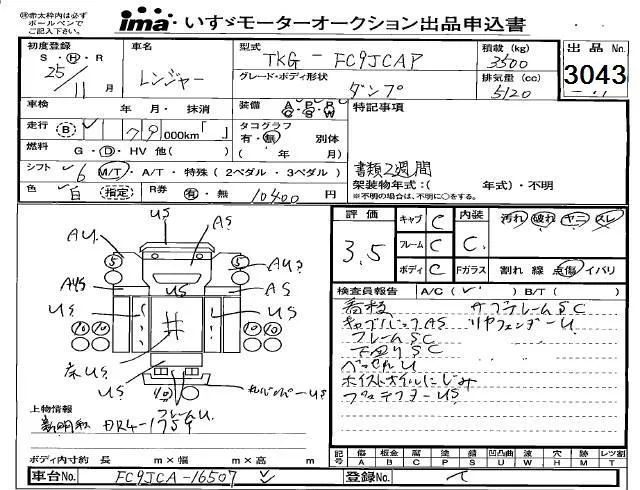 ㊟赤太枠内は必ず
ボールペンで
ご記入下さい。
ima・いすゞモーターオークション出品申込書
初度登録
S・H・R
25
11月
車名
レンジャー
型式
TKG-FC9JCAP
積載(kg)
3500
出品No.
3043
グレード・ボディ形状
ダンプ
排気量(cc)
5120
車検
年 月・抹消
装備
A P R
C S W
特記事項
走行
B
179 000km「 」
タコグラフ
有・無 別体
( 年 月)
燃料
G・D・HV 他( )
シフト
6 M/T・A/T・特殊(2ペダル・3ペダル)
書類2週間
架装物年式:( 年式)・不明
※不明の場合は、不明に○をする。
色
白 指定
R券
有・無 10400円
評価
3.5
キャブ C
フレーム C
ボディ C
内装
C
Fガラス
汚れ 破れ ヤニ スレ
割れ 線 点傷 イバリ
US
AU
AS
5
5
AUS
AYS
US
AS
US
US
10 10
10 10
床US
US
40
フレームU
検査員報告
A/C( ) B/T( )
看板
サブフレームSC
キャブバックAS
リヤフェンダーU
フレームSC
下回りSC
ベッセルU
ホイストオイルにじみ
プロテクターUS
上物情報
新明和 DR4-1759
ボディ内寸約 長 m×幅 m×高 m
記号
傷 板金 腐 塗 錆 凹凸曲 波 穴 跡 レツ割
A B C P S U W H M T
車台No.
FC9JCA-16507
登録No.